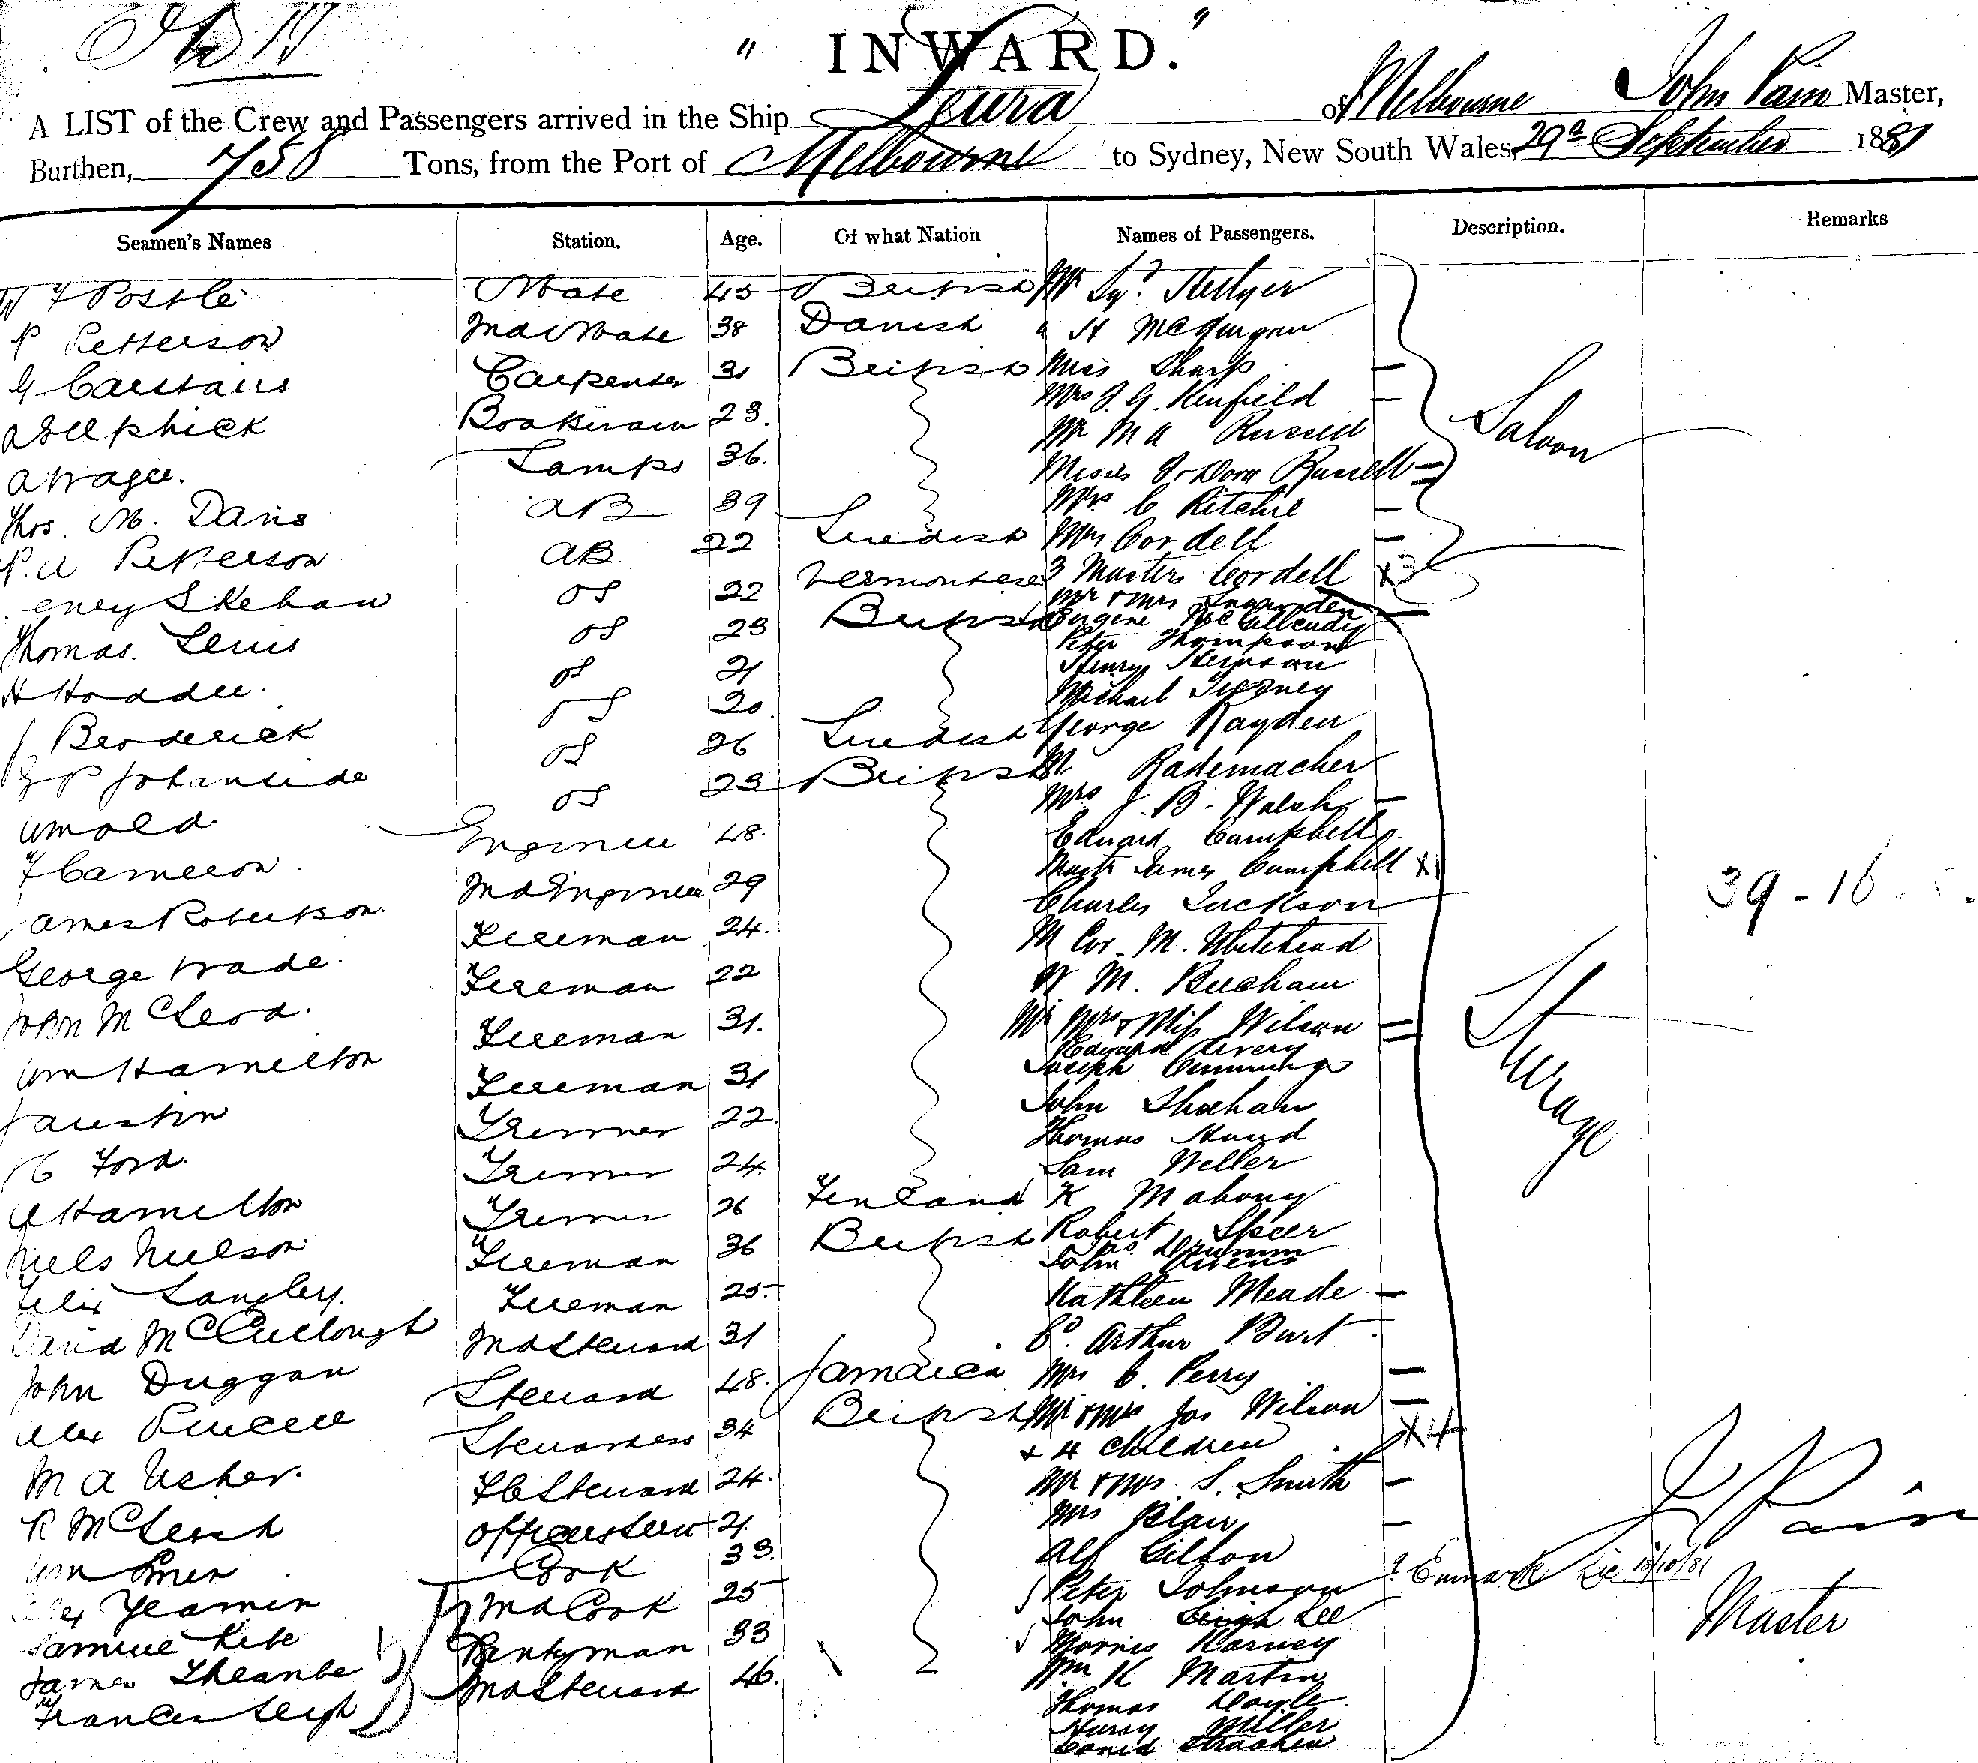 " INWARD. "
A LIST of the Crew and Passengers arrived in the Ship Leura of Melbourne John Pain Master,
Burthen, 758 Tons, from the Port of Melbourne to Sydney, New South Wales, 29th September 1881
Seamen's Names Station. Age. Of what Nation Names of Passengers. Description. Remarks
Postle Mate 45 British Mr
P Petterson 2nd Mate 38 Danish " H
G Carstairs Carpenter 31 British Miss Sharp
A Selphick Boatswain 23. Mrs J. G. Kenfield
A Wragee. Lamps 36. Mr M A Russell
Saloon
Thos. M. Davis AB 39 Misses & Dora Russell
P. A Petterson AB 22 Swedish Mrs C Ritchie
Skehan OS 22 Mrs Cordell
Thomas. Lewis OS 23 British 3 Masters Cordell x3
Mr & Mrs
Eugene
Peter Thompson
H Hoadee. OS 21 Henry
J Broderick OS 20. Michael Tierney
OS 26 Swedish George Rayden
Arnold OS 23 British M Rademacher
F Cameron. Engineer 48. Mrs J. B. Walsh
Edward Campbell
James Robertson. 2nd Engineer 29 Mastr James Campbell x1
39 - 16
George Wade. Fireman 24. Charles Jackson
John McLeod. Fireman 22 M. Whitehead
Wm Hamilton Fireman 31. W M. Beecham
J Austin Fireman 31 Mr Mrs & Miss Wilson
Edward Avery
Joseph Cummings
Steerage
Ford. Trimmer 22. John Sheehan
A Hamilton Trimmer 24. Thomas Hurd
Niels Neilson Trimmer 26 Finland Sam Weller
Felix Langley. Fireman 36 British K Mahony
Robert Speer
John Owens
David McCullough Fireman 25 Kathleen Meade
John Duggan 2nd Steward 31 Arthur Burt
Alex Steward 48. Jamaica Mrs C. Perry
M A Usher. Stewardess 34 British Mr & Mrs Jos Wilson
& 4 Children x4
R McLeish F C Steward 24. Mr & Mrs. S. Smith
J Pain
Wm Officers Servt 21. Mrs Blair
Alex Yeamen Cook 33. Alf Gilson
Samuel Kite 2nd Cook 25 Peter Johnson
John Lee
James Pantryman 33 Morris Harney
Master
Frances Leigh 2nd Steward 46. Wm K Martin
Thomas Doyle.
Harry Miller
David Strachen